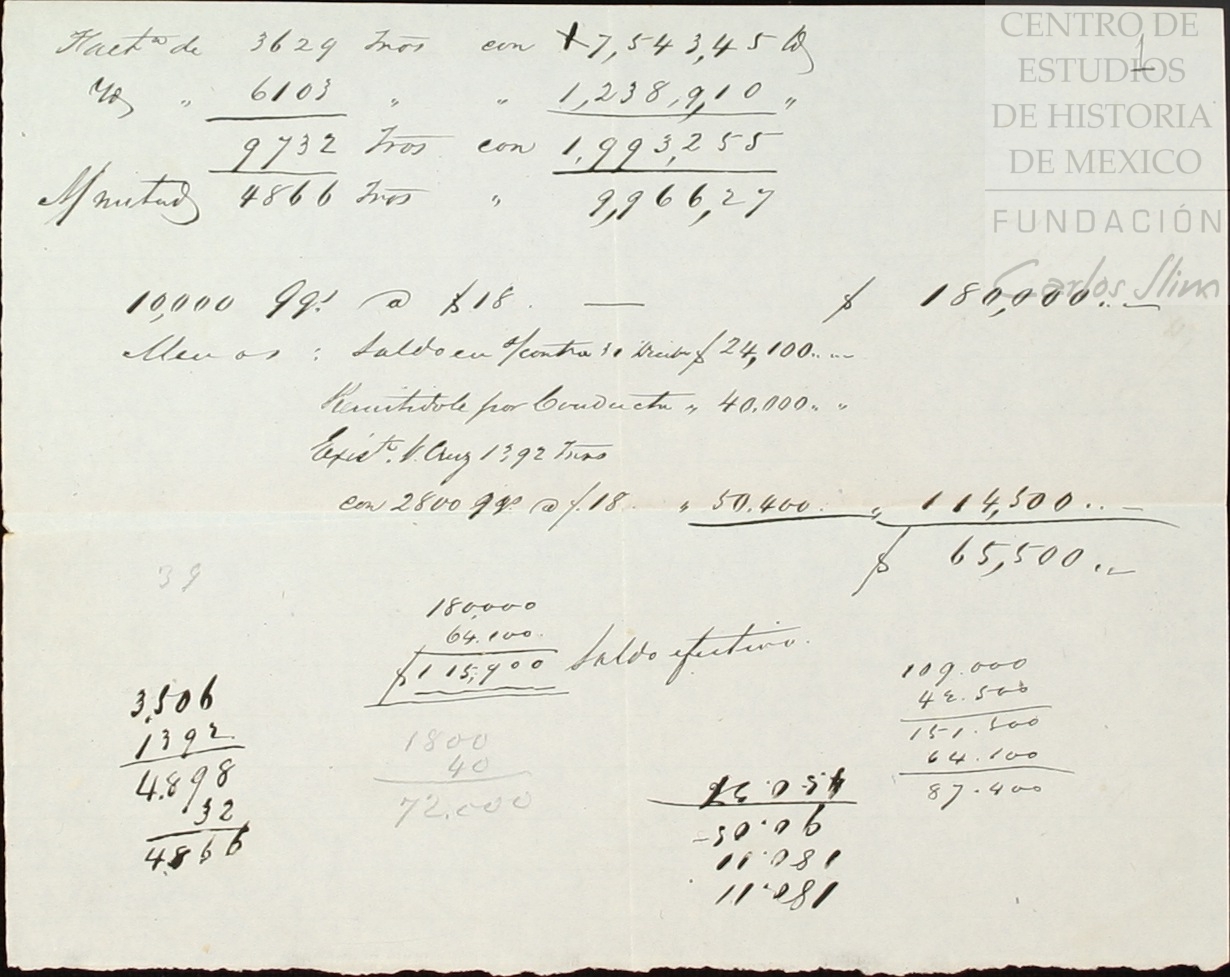 CENTRO DE
ESTUDIOS
DE HISTORIA
DE MEXICO
FUNDACIÓN
Carlos Slim
1
Fact.ª de 3629 Tros con 7,543,45 lb
Id " 6103 " " 1,238,910 "
9732 Tros con 1,993,255
Mitad 4866 Tros " 9,966,27
10,000 qq.s a $18. — $ 180,000..—
Menos: Saldo en c/contra 31 Dicbre $ 24,100..—
Remitidole por Conducta " 40.000.. "
Exist.ª V. Cruz 1392 Tros
con 2800 qqs a $.18. " 50.400. " 114,500..—
$ 65,500..—
39
180,000
64.100.
$115,900 Saldo efectivo.
3,506
1392.
4.898
32
4866
1800
40
72.000
109.000
42.500
151.500
64.100
87.400
181.081
11.081
90.05-